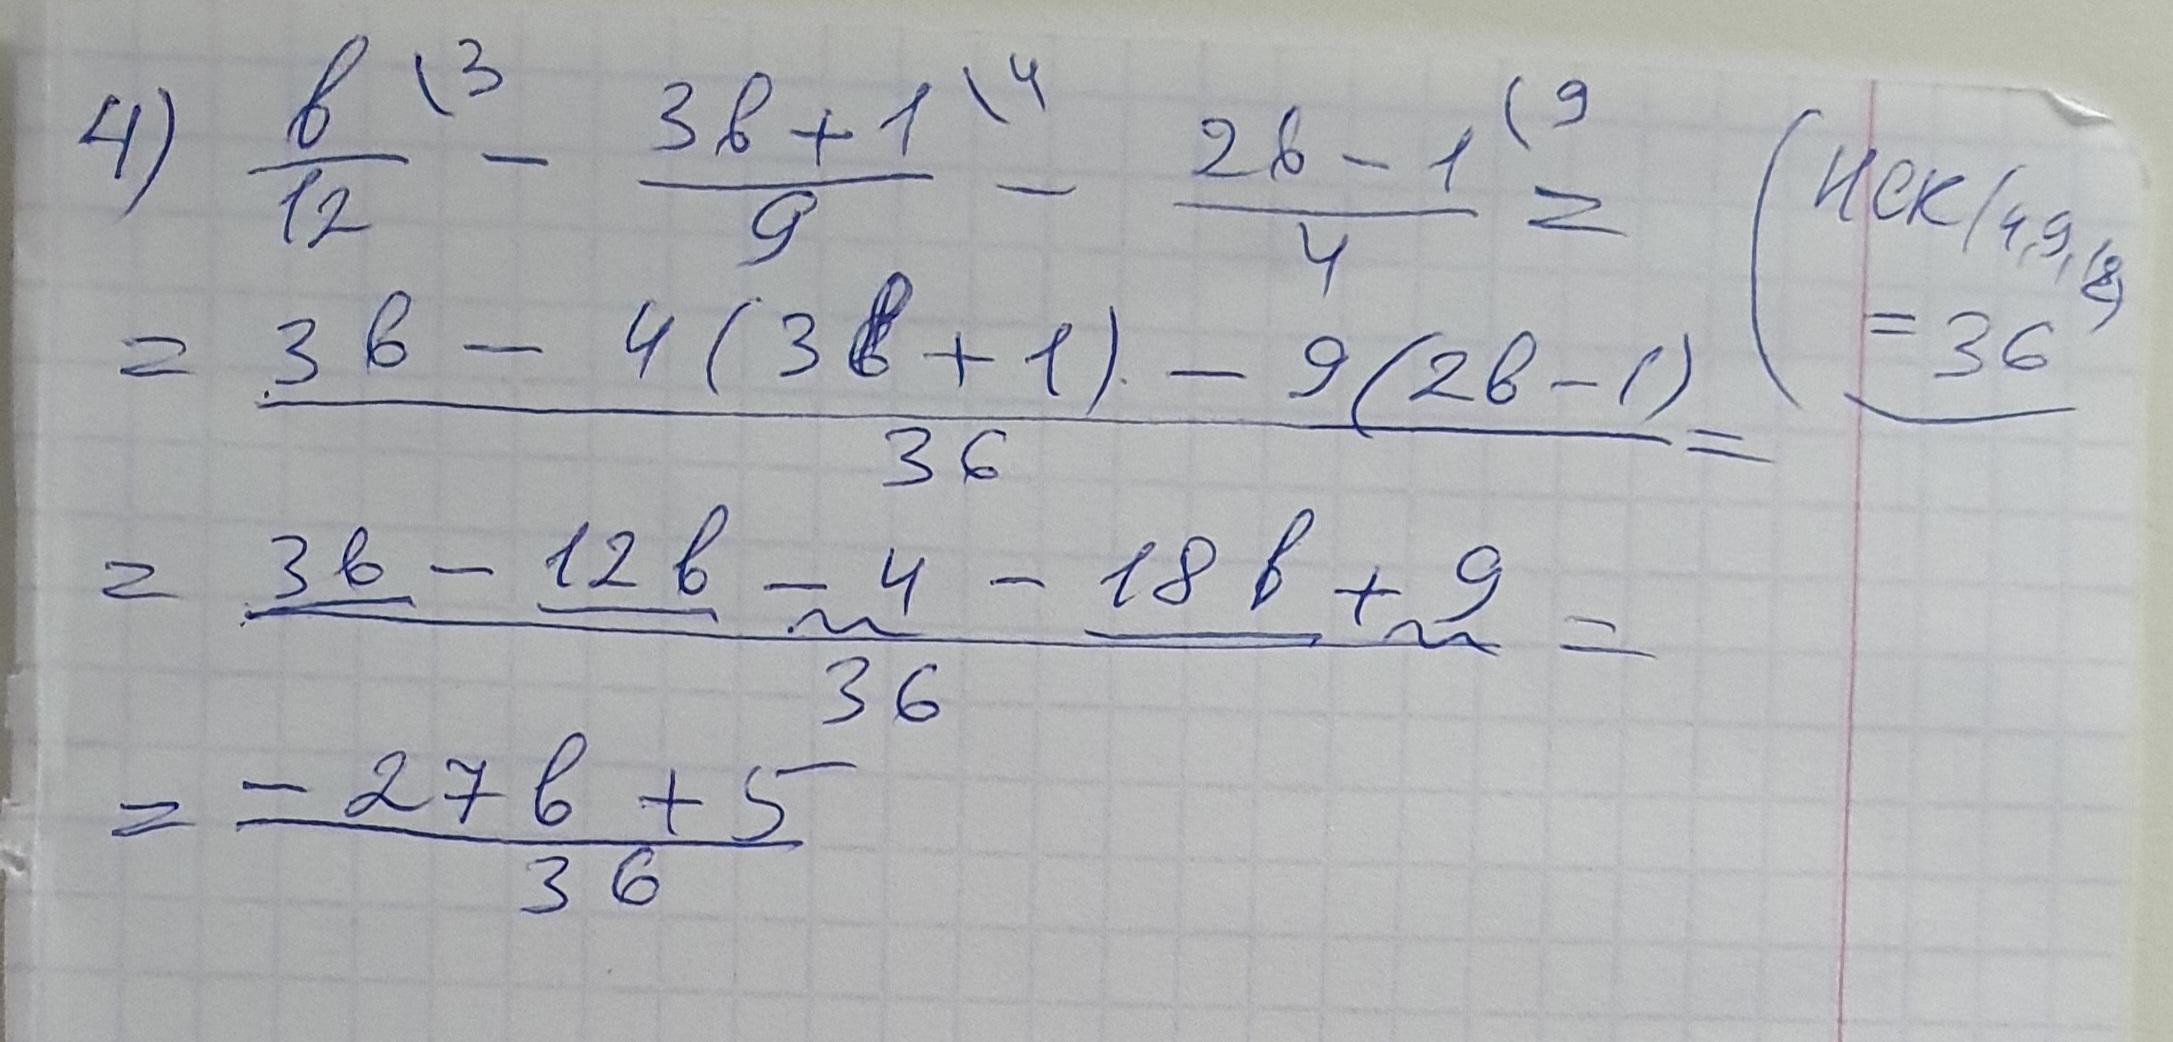 4) в/12 \3 - 3в+1/9 \4 - 2в-1/4 (9 = (НСК(4,9,12)
= 36
= 3в - 4(3в+1) - 9(2в-1)/36 =
= 3в - 12в - 4 - 18в + 9/36 =
= -27в + 5/36